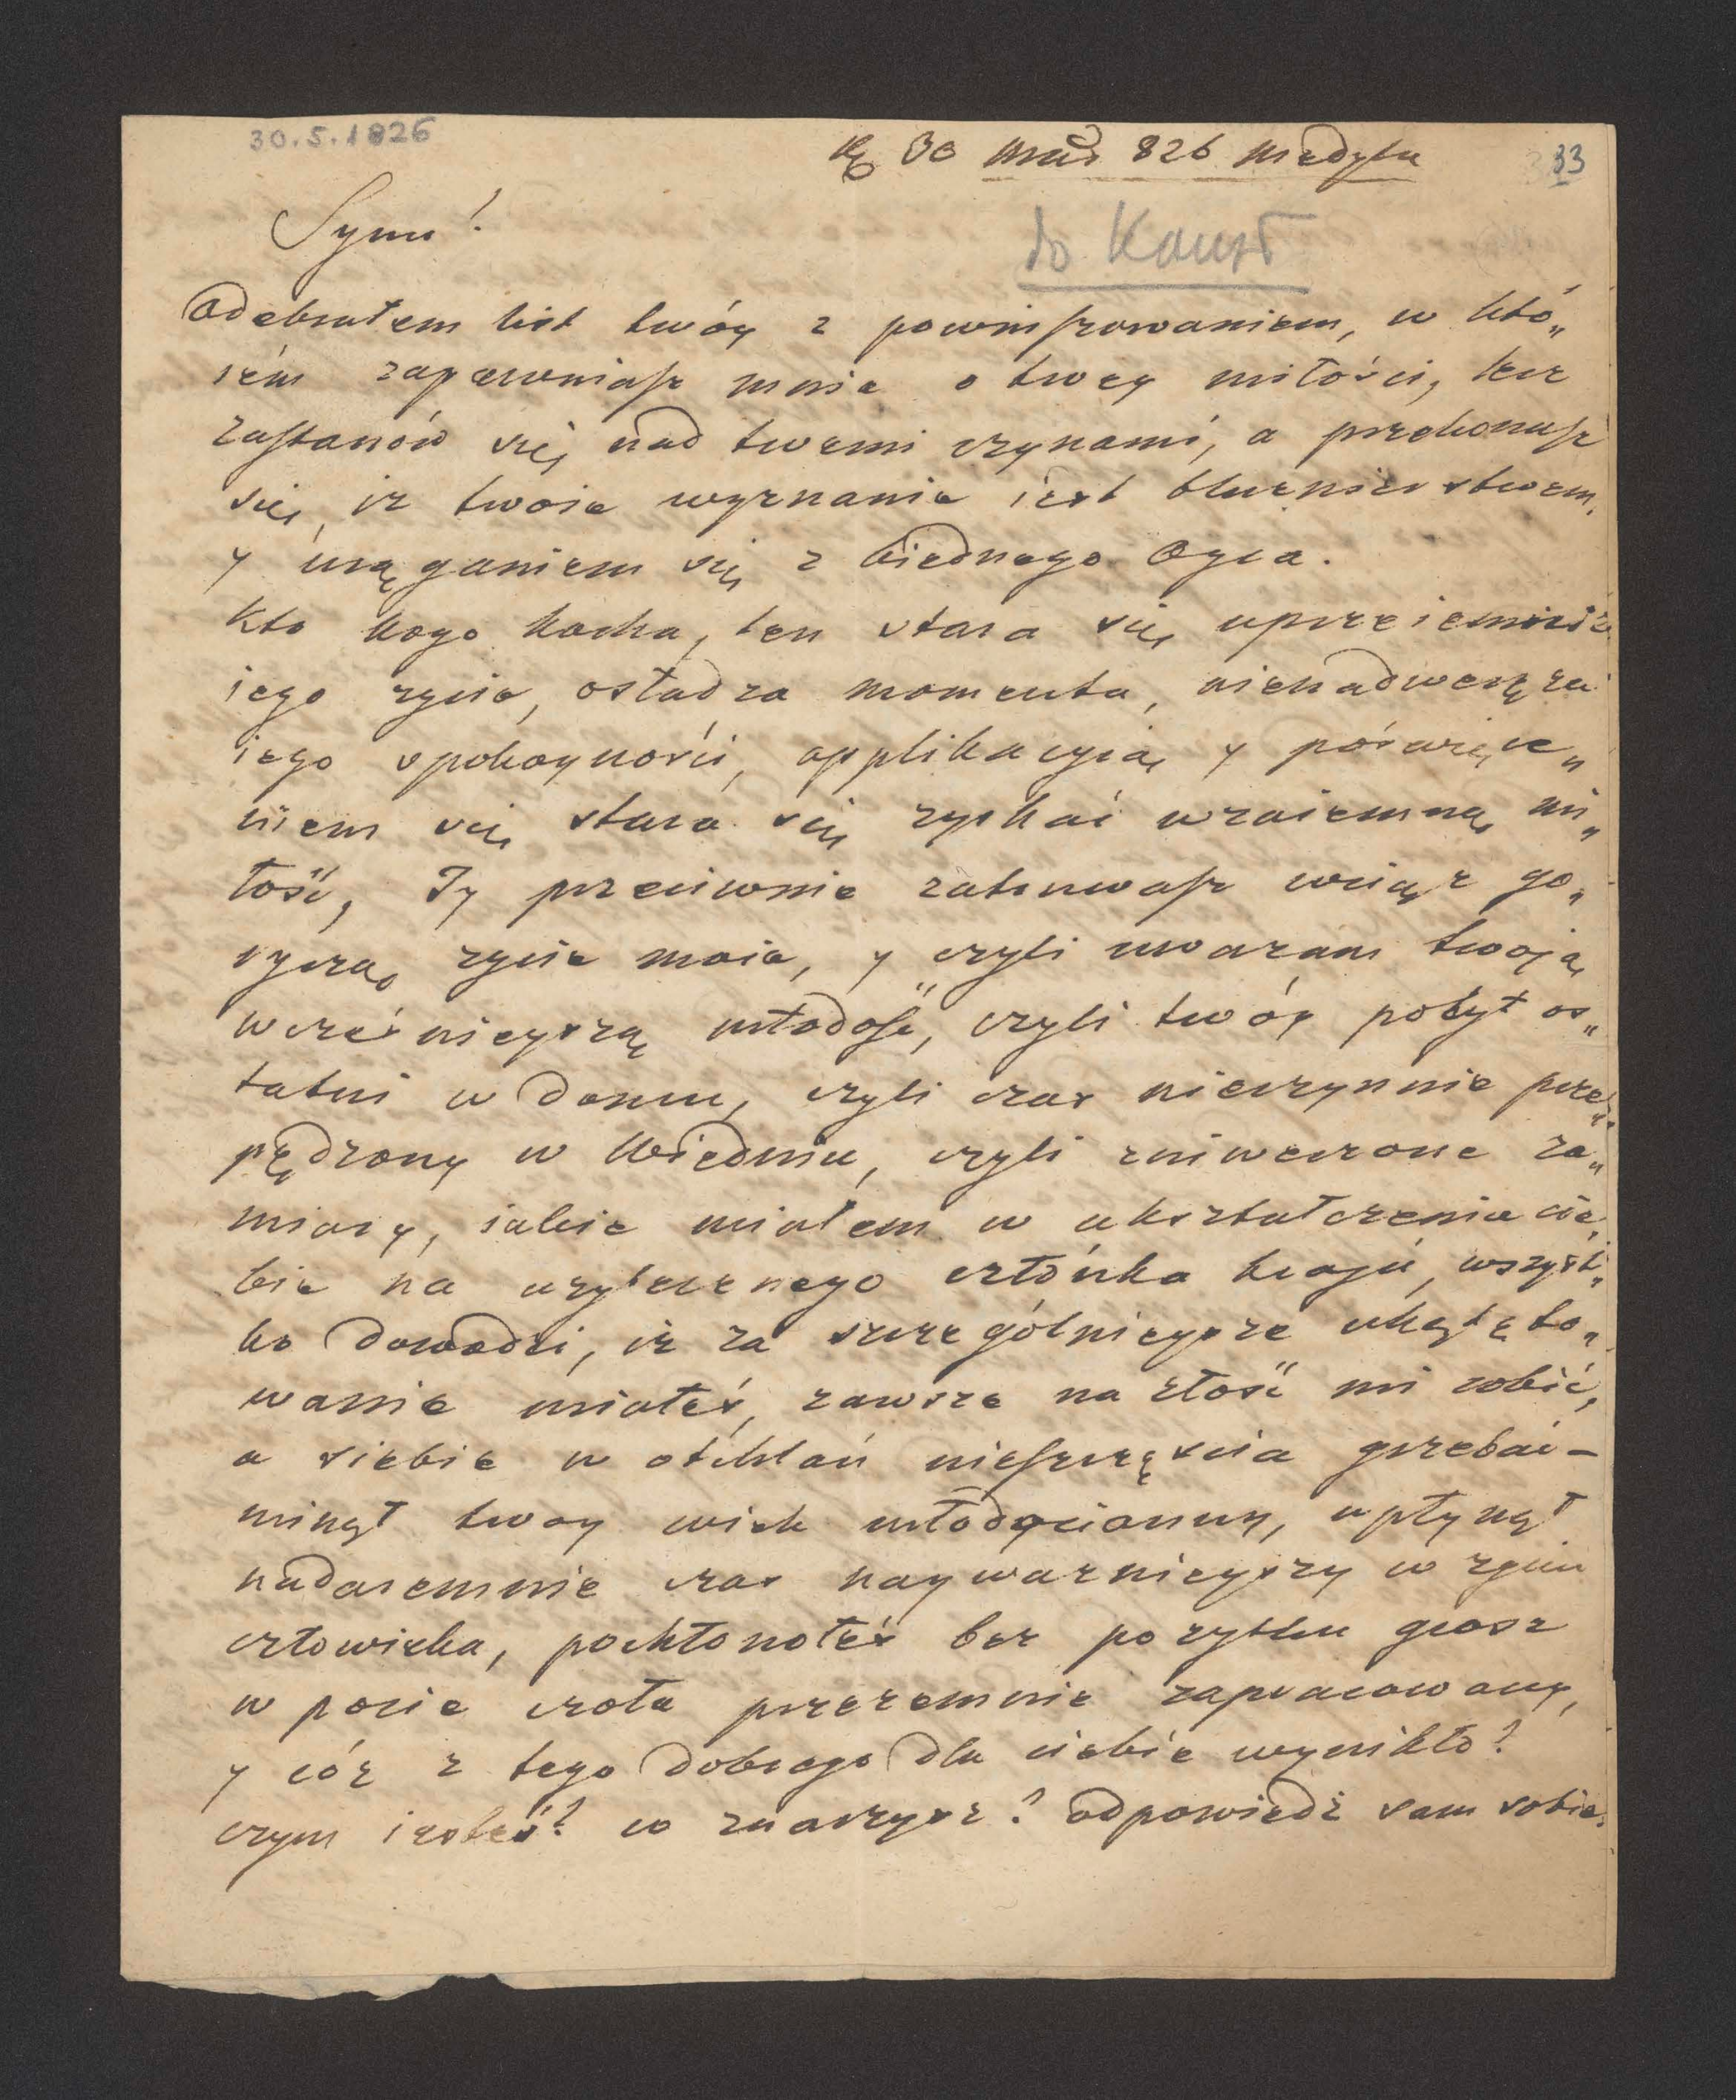 30.5.1826
30 Maja 826 Medyka
33
Synu!
do Konst
Odebrałem list twóy z powinszowaniem, w któ„
rém zapewniasz mnie o twey miłości, lecz
zastanów się nad twemi czynami, a przekonasz
się, iż twoie wyznanie iest bluźnierstwem,
y urąganiem się z biednego Oyca.
Kto kogo kocha, ten stara się uprzeiemnić
iego zycie, osładza momenta, nienadweręża
iego spokoyności, applikacyią y poświęce„
niem się stara się zyskać wzaiemną mi„
łość, Ty przeciwnie zatruwasz wciąż go„
ryczą zycie moie, y czyli uważam twoją
wcześnieyszą młodość, czyli twóy pobyt os„
tatni w domu, czyli czas nieczynnie prze„
pędzony w Wiedniu, czyli zniweczone za„
miary, iakie miałem w ukształczeniu cie„
bie na uzytecznego członka kraju, wszyst„
ko dowodzi, iż za szczególnieysze ukątęto„
wanie miałeś, zawsze na złość mi robić,
a siebie w otchłań nieszczęścia grzebać –
minął twoy wiek młodocianny, upłynął
nadaremnie czas nayważnieyszy w zyciu
człowieka, pochłonołeś bez pozytku grosz
w pocie czoła przezemnie zapracowany,
y cóż z tego dobrego dla ciebie wynikło?
czym iesteś? co znaczysz? odpowiedź sam sobie.